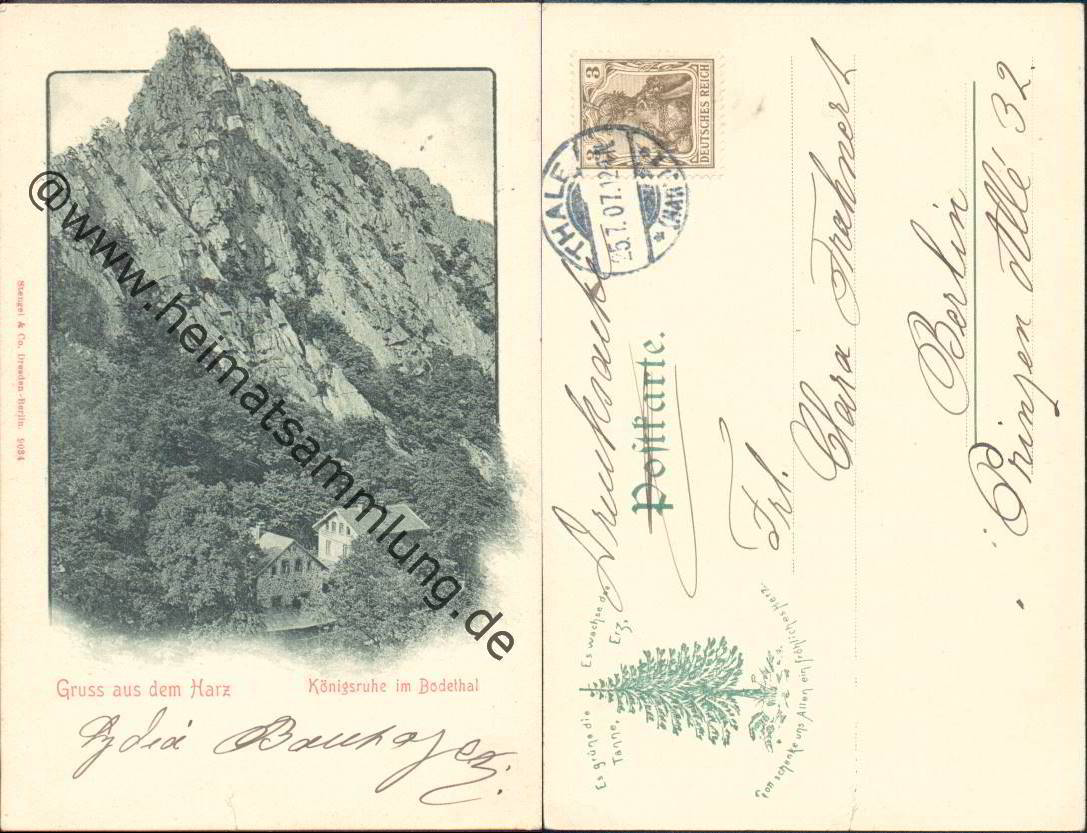 @www.heimatsammlung.de
Stengel & Co. Dresden-Berlin. 9034
Gruss aus dem Harz
Königsruhe im Bodethal
Lydia
3 3
DEUTSCHES REICH
THALE
25.7.07.12-1N
(HARZ)
Drucksache
Postkarte.
Frl.
Clara Trahnert
Berlin
Prinzen Allé 32.
Es grüne die
Tanne,
Es wachse das
Erz,
Gott schenke uns Allen ein fröhliches Herz.